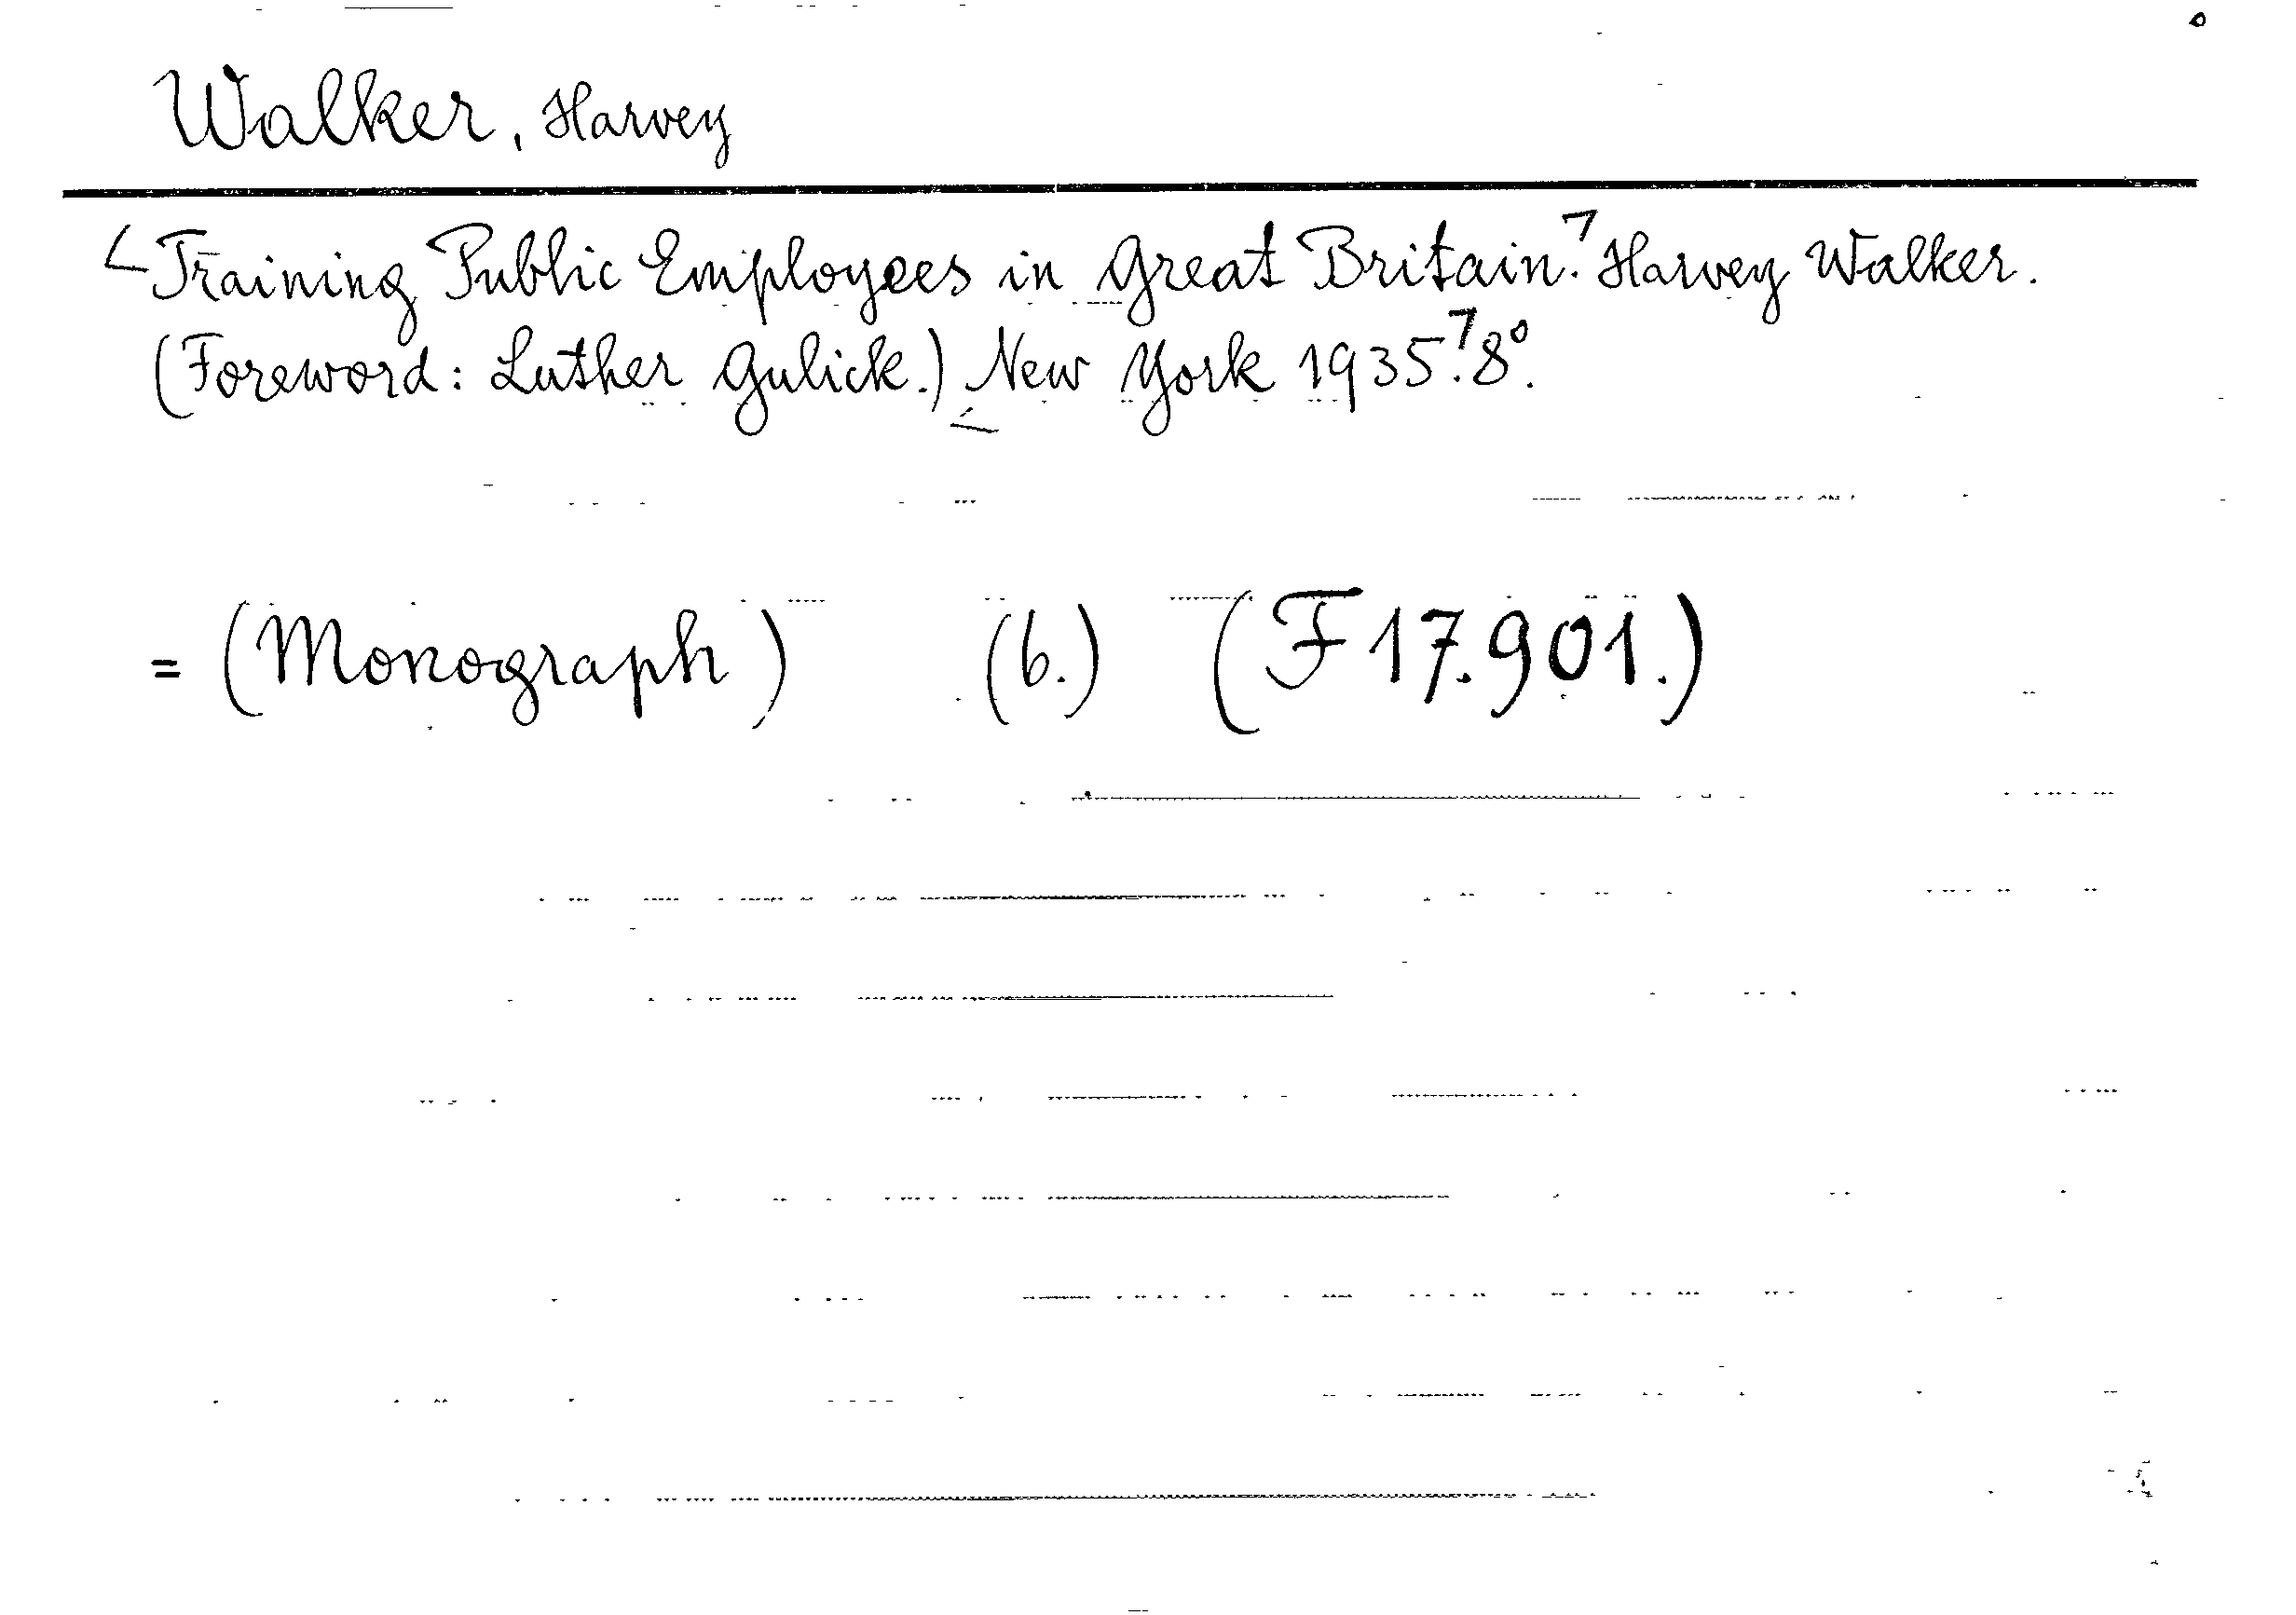 Walker, Harvey
Training Public Employees in Great Britain. Harvey Walker.
(Foreword: Luther Gulick.) New York 1935. 8°.
= (Monograph) (6.) (F 17.901.)